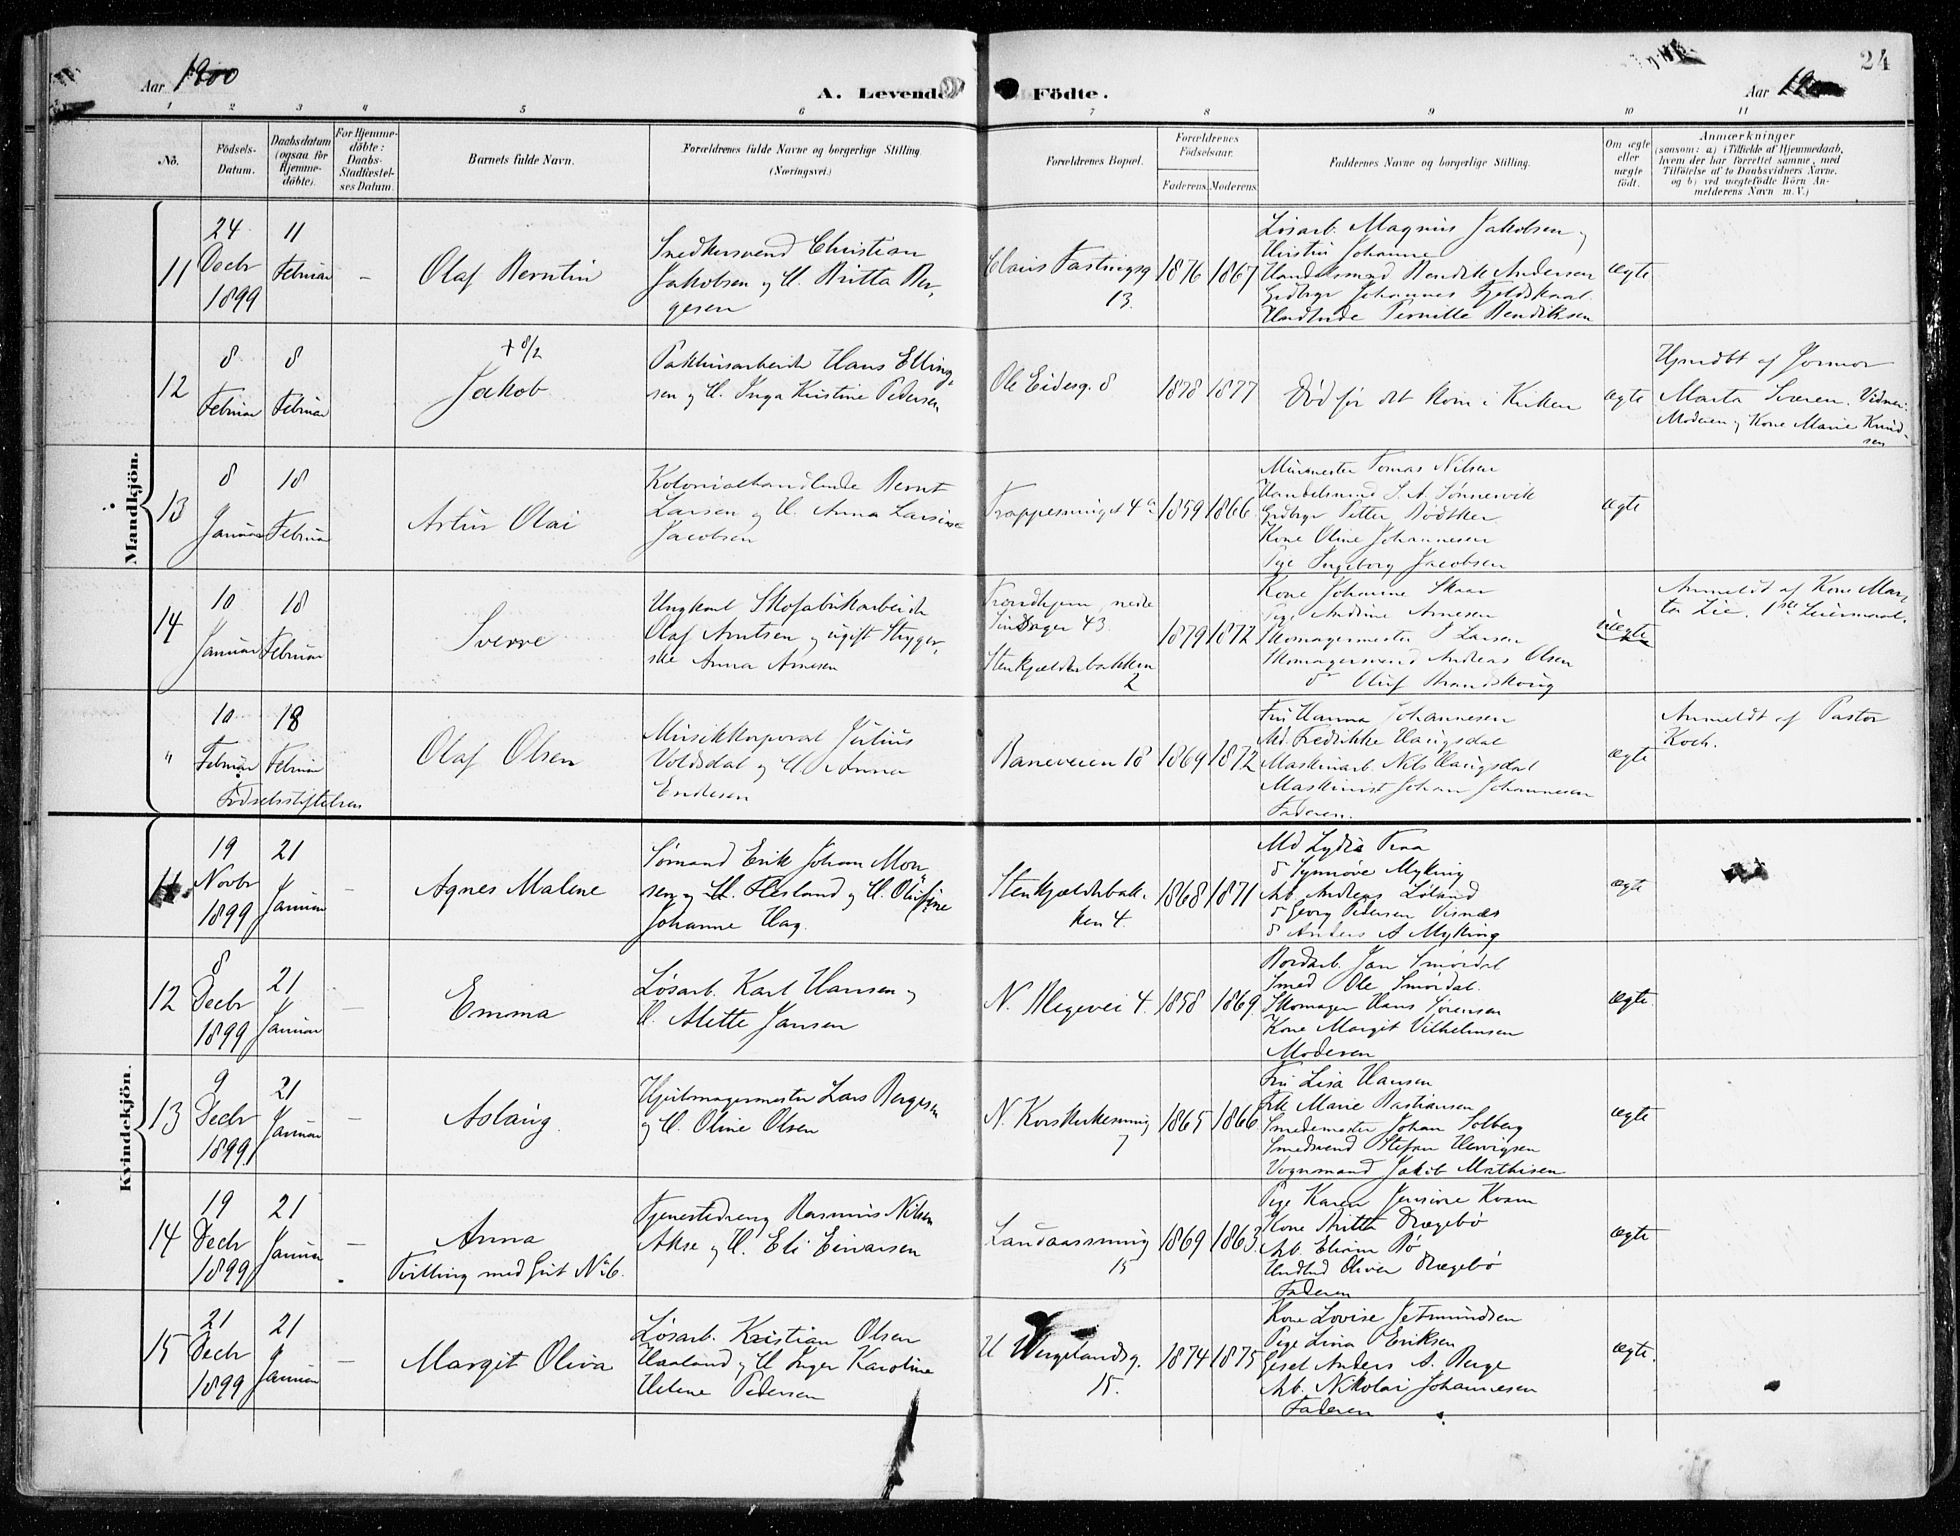 Aar 1900
A. Levende Födte.
Aar 19
24
1 2 3 4 5 6 7 8 9 10 11
No.
Födsels-Datum.
Daabsdatum (ogsaa for Hjemmedöbte).
For Hjemmedöbte: Daabs-Stadfæstelses Datum.
Barnets fulde Navn.
Forældrenes fulde Navne og borgerlige Stilling.
(Næringsvei.)
Forældrenes Bopæl.
Forældrenes Födselsaar.
Faderens. Moderens.
Faddernes Navne og borgerlige Stilling.
Om ægte eller uægte födt.
Anmærkninger
(saasom: a) i Tilfælde af Hjemmedaab, hvem der har forrettet samme, med Tilföielse af to Daabsvidners Navne. og b) ved uægtefödte Börn Anmelderens Navn m. V.)
Mandkjön.
11
24 Decbr 1899
11 Februar
–
Olaf Berntin
Snedkersvend Christian
Jakobsen og H. Britta Ber,
gesen
Claus Fastingsg
13.
1876 1867
Løsarb. Magnus Jakobsen og
Hustru Johanne
Handelsmand Bendik Andersen
Gidbryr Johannes Fjeldskaal
Handlende Pernille Bendiksen
ægte
12
8 Februar
8 Februar
+ 8/2
Jakob
Pakhusarbeider Hans Elling,
sen og H. Inga Kristine Pedersen
Ole Eidesg. 8
1878 1877
Død før det kom i Kirken
ægte
Hjmdbt af Jormor
Marta Sværen. Vidner:
Moderen og Kone Marie Knud-
sen
13
8 Januar
18 Februar
Artur Olai
Kolonialhandlende Bernt
Larsen og H. Anna Larsine
Jacobsen
Trappesmuget 4a
1859 1866
Murmester Tomas Nilsen
Handelsmand S. A. Sønnevik
Petter Bødtker
Kone Oline Johannesen
Pige Ingeborg Jacobsen
ægte
14
10 Januar
18 Februar
Sverre
Ungkarl Skofabrikarbeider
Olaf Arntsen og ugift Stryger,
ske Anna Arnesen
Trondhjem, nedre
43.
Stenkjælderbakken
2
1879 1872
Kone Johanne Skaar
Pige Andine Arnesen
Skomagermester S Larsen
Skomagersvend Andreas Olsen
do Oluf Brandskoug
uægte
Anmeldt af Kone Mar,
ta Lie. 1ste Leiermaal.
"
10 Februar
18 Februar
Fødselsstiftelsen
Olaf Olsen
Musikkorporal Julius
Voldsdal og H. Anna
Endesen
Baneveien 18
1869 1872
Fru Hanna Johannesen
Md. Fredrikke Haugsdal
Maskinarb. Nils Haugsdal
Maskinist Johan Johannesen
Faderen.
ægte
Anmeldt af Pastor
Koch.
Kvindekjön.
11
19 Novbr 1899
21 Januar
–
Agnes Malene
Sømand Erik Johan Mon,
sen og H. Flesland og H. Olufine
Johanne Hag.
Stenkjælderbak,
ken 4.
1868 1871
Md Lydia
do Synnøve Myking
Arb. Andreas Løland
do Georg Pedersen Visnæs
do Anders A Myking
ægte
12
8 Decbr 1899
21 Januar
–
Emma
Løsarb. Karl Hansen og
H. Alette Jansen
N. Blegevei 4.
1858 1869
Bordarb. Jan Smørdal
Smed Ole Smørdal.
Skomager Hans Sørensen
Kone Margit Vilhelmsen
Moderen
ægte.
13
9 Decbr 1899
21 Januar
–
Aslaug.
Hjulmagermester Lars Bergesen
og H. Oline Olsen
N. Korskirkesmug
7
1865 1866
Fru Lisa Hansen
Frk Marie Bastiansen
Smedemester Johan Solberg
Smedsvend Stefan
Vognmand Jakob Mathisen
ægte
14
19 Decbr 1899
21 Januar
–
Anna
Tvilling med Gut No 6.
Tjenestedreng Rasmus Nilsen
Akse og H. Eli Einarsen
Landaassmug
15
1869 1863
Pige Karen Jensine Kvam
Kone Britta Dragebø
Arb. Eliam Bø
Oliver Dragebø
Faderen
ægte
15
21 Decbr 1899
21 Januar
–
Margit Oliva
Løsarb. Kristian Olsen
Haaland og H Inger Karoline
Helene Pedersen
U Wergelandsg.
15.
1874 1875
Kone Lovise Jetmundsen
Pige Lina Eriksen
Gesel Anders A. Berge
Arb. Nikolai Johannesen
Faderen
ægte.